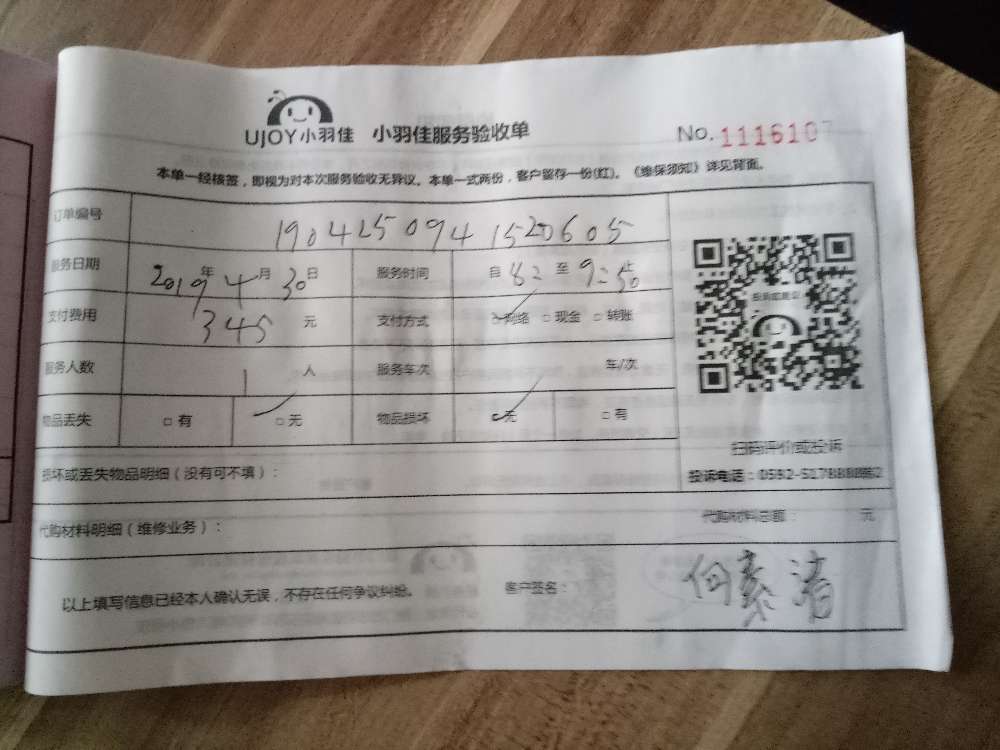 UJOY小羽佳 小羽佳服务验收单 No. 1116107
本单一经核签，即视为对本次服务验收无异议。本单一式两份，客户留存一份(红)。《维保须知》详见背面。
订单编号 1904250941520605
服务日期 2019年4月30日 服务时间 自 8: 至 9:50 止
支付费用 345 元 支付方式 ☑网络 □现金 □转账
服务人数 1 人 服务车次 车/次
物品丢失 □有 ☑无 物品损坏 ☑无 □有
扫码评价或投诉
损坏或丢失物品明细（没有可不填）： 投诉电话：0592-5178888转2
代购材料明细（维修业务）： 代购材料总额： 元
以上填写信息已经本人确认无误，不存在任何争议纠纷。 客户签名：